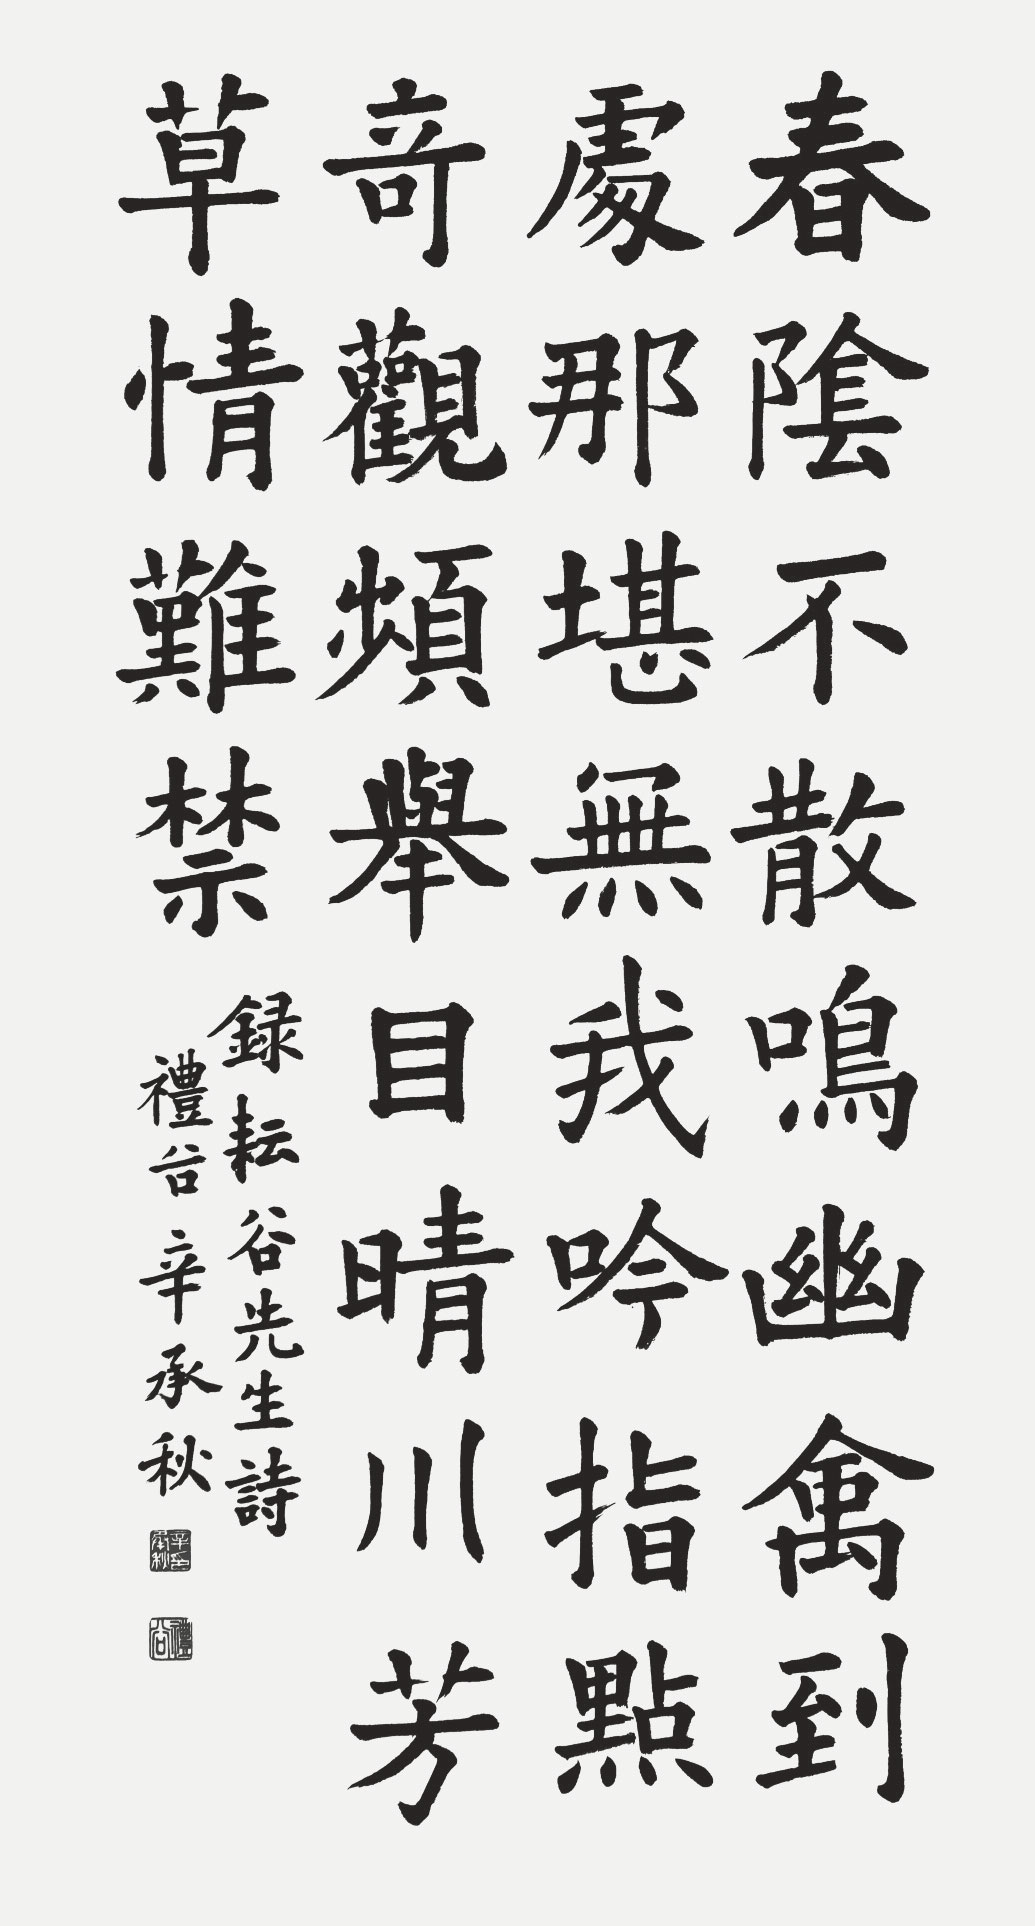 春陰不散鳴幽禽到
處那堪無我吟指點
奇觀頻舉目晴川芳
草情難禁
録耘谷先生詩
禮谷辛承秋
辛承秋
禮谷